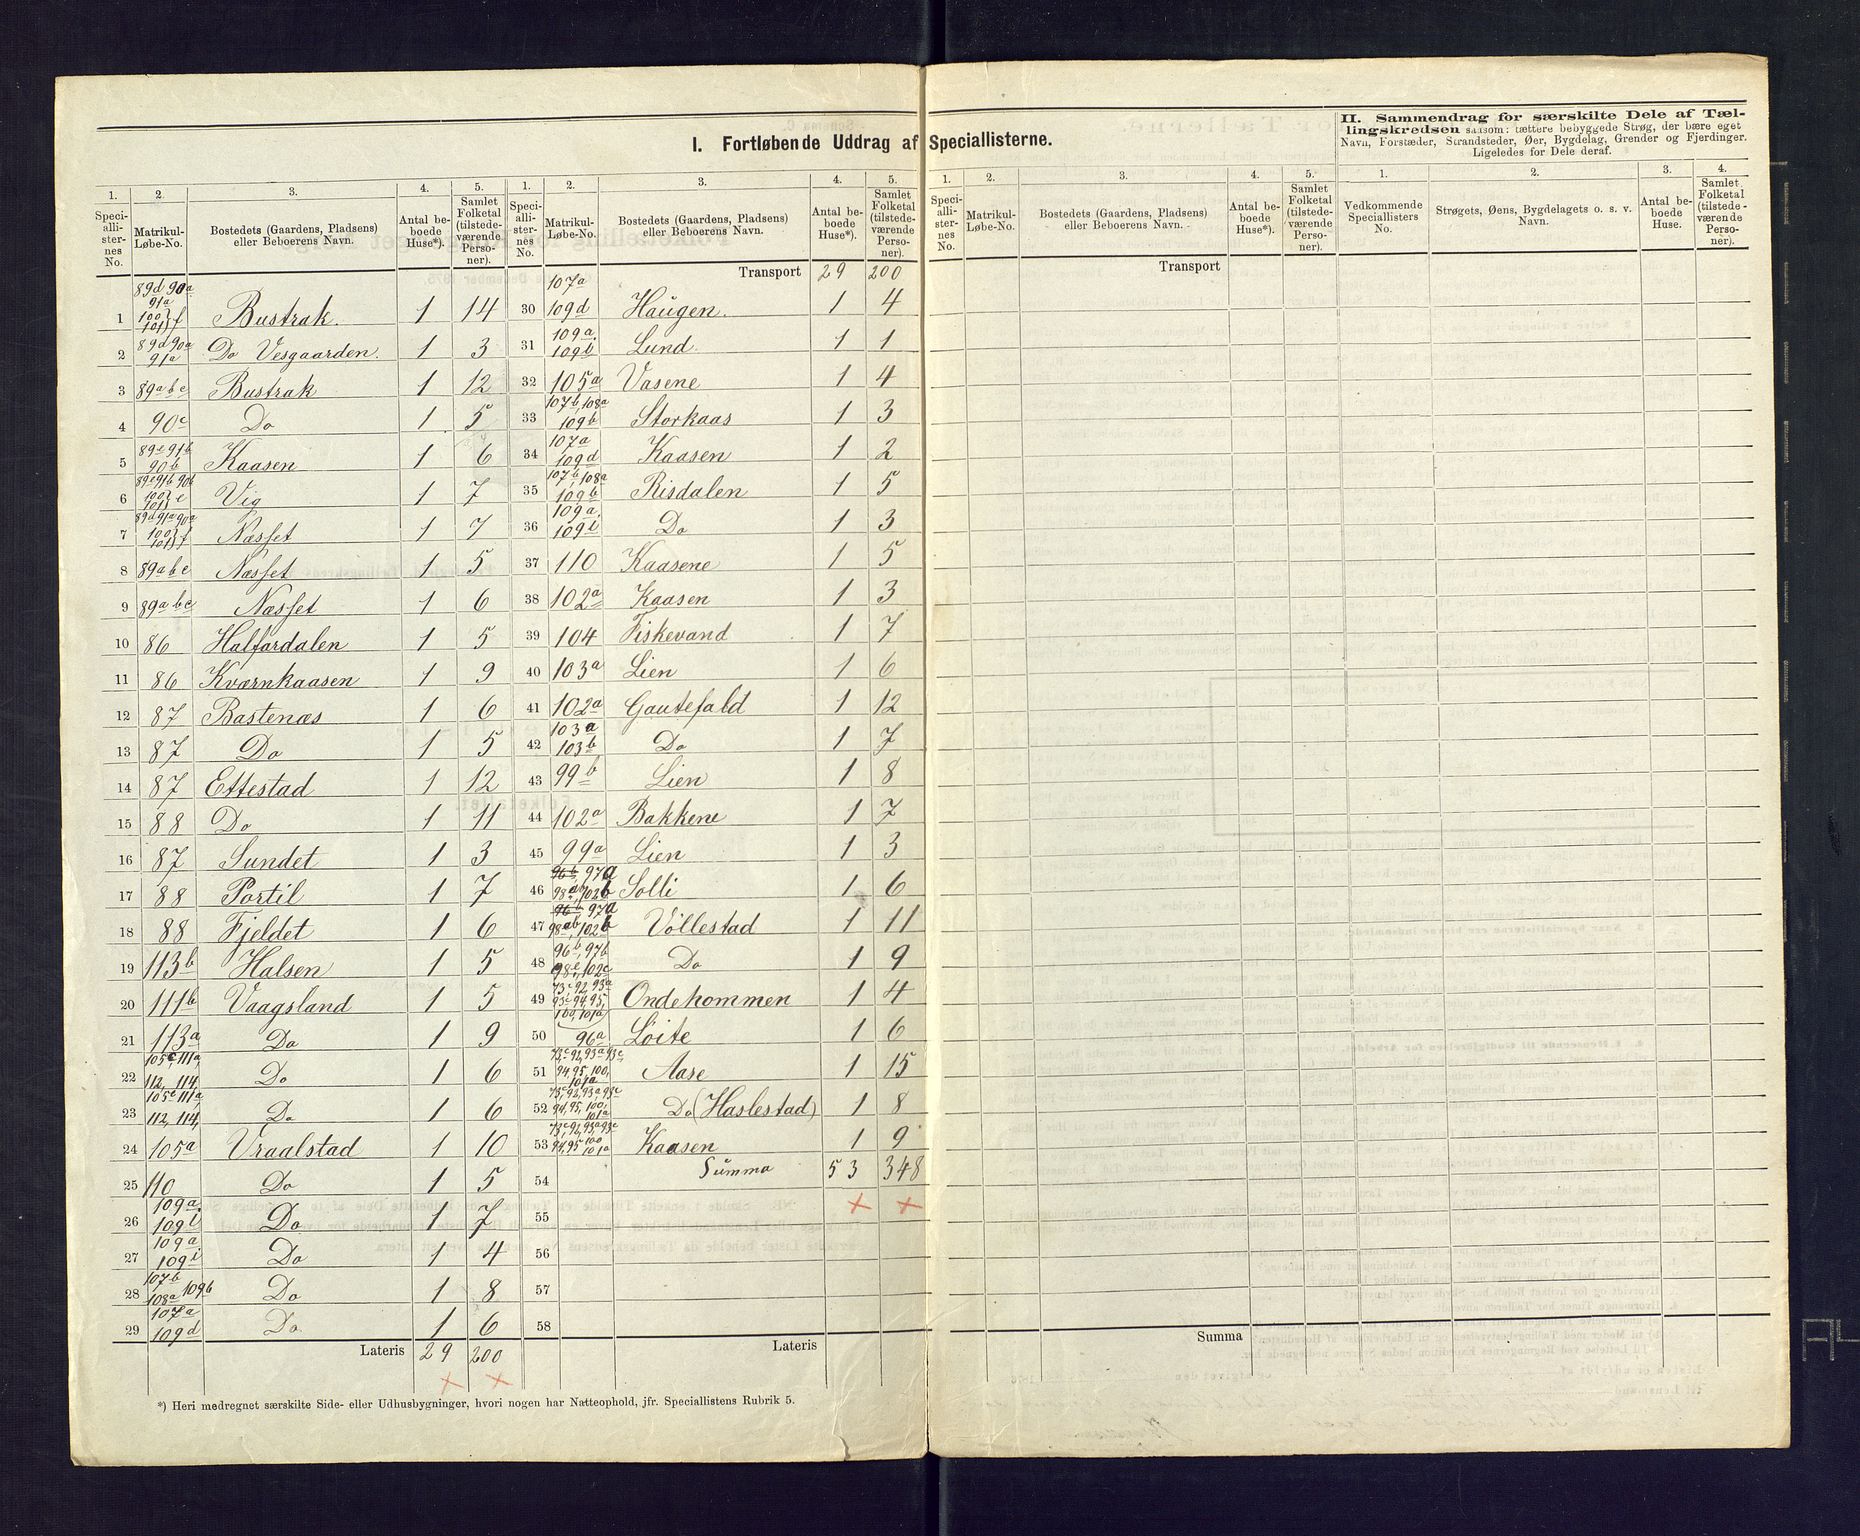 I. Fortløbende Uddrag af Speciallisterne.
II. Sammendrag for særskilte Dele af Tæl-
lingskredsen saasom: tættere bebyggede Strøg, der bære eget
Navn, Forstæder, Strandsteder, Øer, Bygdelag, Grender og Fjerdinger.
Ligeledes for Dele deraf.
1. 2. 3. 4. 5. 1. 2. 3. 4. 5. 1. 2. 3. 4. 5. 1. 2. 3. 4.
Speciallisternes No. Matrikul-Løbe-No. Bostedets (Gaardens, Pladsens) eller Beboerens Navn. Antal beboede Huse*). Samlet Folketal (tilstedeværende Personer).
Speciallisternes No. Matrikul-Løbe-No. Bostedets (Gaardens, Pladsens) eller Beboerens Navn. Antal beboede Huse*). Samlet Folketal (tilstedeværende Personer).
Speciallisternes No. Matrikul-Løbe-No. Bostedets (Gaardens, Pladsens) eller Beboerens Navn. Antal beboede Huse*). Samlet Folketal (tilstedeværende Personer).
Vedkommende Speciallisters No. Strøgets, Øens, Bygdelagets o. s. v. Navn. Antal beboede Huse. Samlet Folketal (tilstedeværende Personer).
1 89d 90a 91a 100 101 f Bustrak. 1 14
2 89d 90a 91a Do Vesgaarden. 1 3
3 89a b c Bustrak 1 12
4 90c Do 1 5
5 89e 91b 90b Kaasen 1 6
6 89e 91b 90b 100 101 e Vig 1 7
7 89d 91a 90a 100 101 f Næsset 1 7
8 89a b c Næsset 1 5
9 89a b c Næsset 1 6
10 86 Halfardalen 1 5
11 86 Kværnkaasen 1 9
12 87 Bastenæs 1 6
13 87 Do 1 5
14 87 Ettestad 1 12
15 88 Do 1 11
16 87 Sundet 1 3
17 88 Portil 1 7
18 88 Fjeldet 1 6
19 113b Halsen 1 5
20 111b Vaagsland 1 5
21 113a Do 1 9
22 105c, 111a, 112, 114, Do 1 6
23 105c 111a, 112, 114, Do 1 6
24 105a Vraalstad 1 10
25 110 Do 1 5
26 109a, 109i Do 1 7
27 109a 109i Do 1 4
28 107b 108a 109b Do 1 8
29 107a 109d Do 1 6
Lateris 29 200
Transport 29 200
30 107a 109d Haugen. 1 4
31 109a, 109i Lund. 1 1
32 105a Vasene 1 4
33 107b, 108a 109b Storkaas 1 3
34 107a 109d Kaasen 1 2
35 107b, 108a 109b Risdalen 1 5
36 109a, 109i Do 1 3
37 110 Kaasene 1 5
38 102a Kaasen 1 3
39 104 Fiskevand 1 7
40 103a Lien 1 6
41 102a Gautefald 1 12
42 103a 103b Do 1 7
43 99b Lien 1 8
44 102a Bakkene 1 7
45 99a Lien 1 3
46 96b, 97a 98ab, 102b Solli 1 6
47 96b 97a 98ab, 102b Völlestad 1 11
48 96b, 97b 98c, 102c Do 1 9
49 73c, 92, 93a 93c 94, 95, 100, 101a Ondehommen 1 4
50 96a Löite 1 6
51 73c, 92, 93a 93c 94, 95, 100, 101a Aase 1 15
52 73c, 92, 93a 93c 94, 95, 100, 101a Do (Haslestad) 1 8
53 73c, 92, 93a 93c 94, 95 100 101a Kaasen 1 9
54 Summa 53 348
55
56
57
58
Lateris
Transport
Summa
*) Heri medregnet særskilte Side- eller Udhusbygninger, hvori nogen har Natteophold, jfr. Speciallistens Rubrik 5.